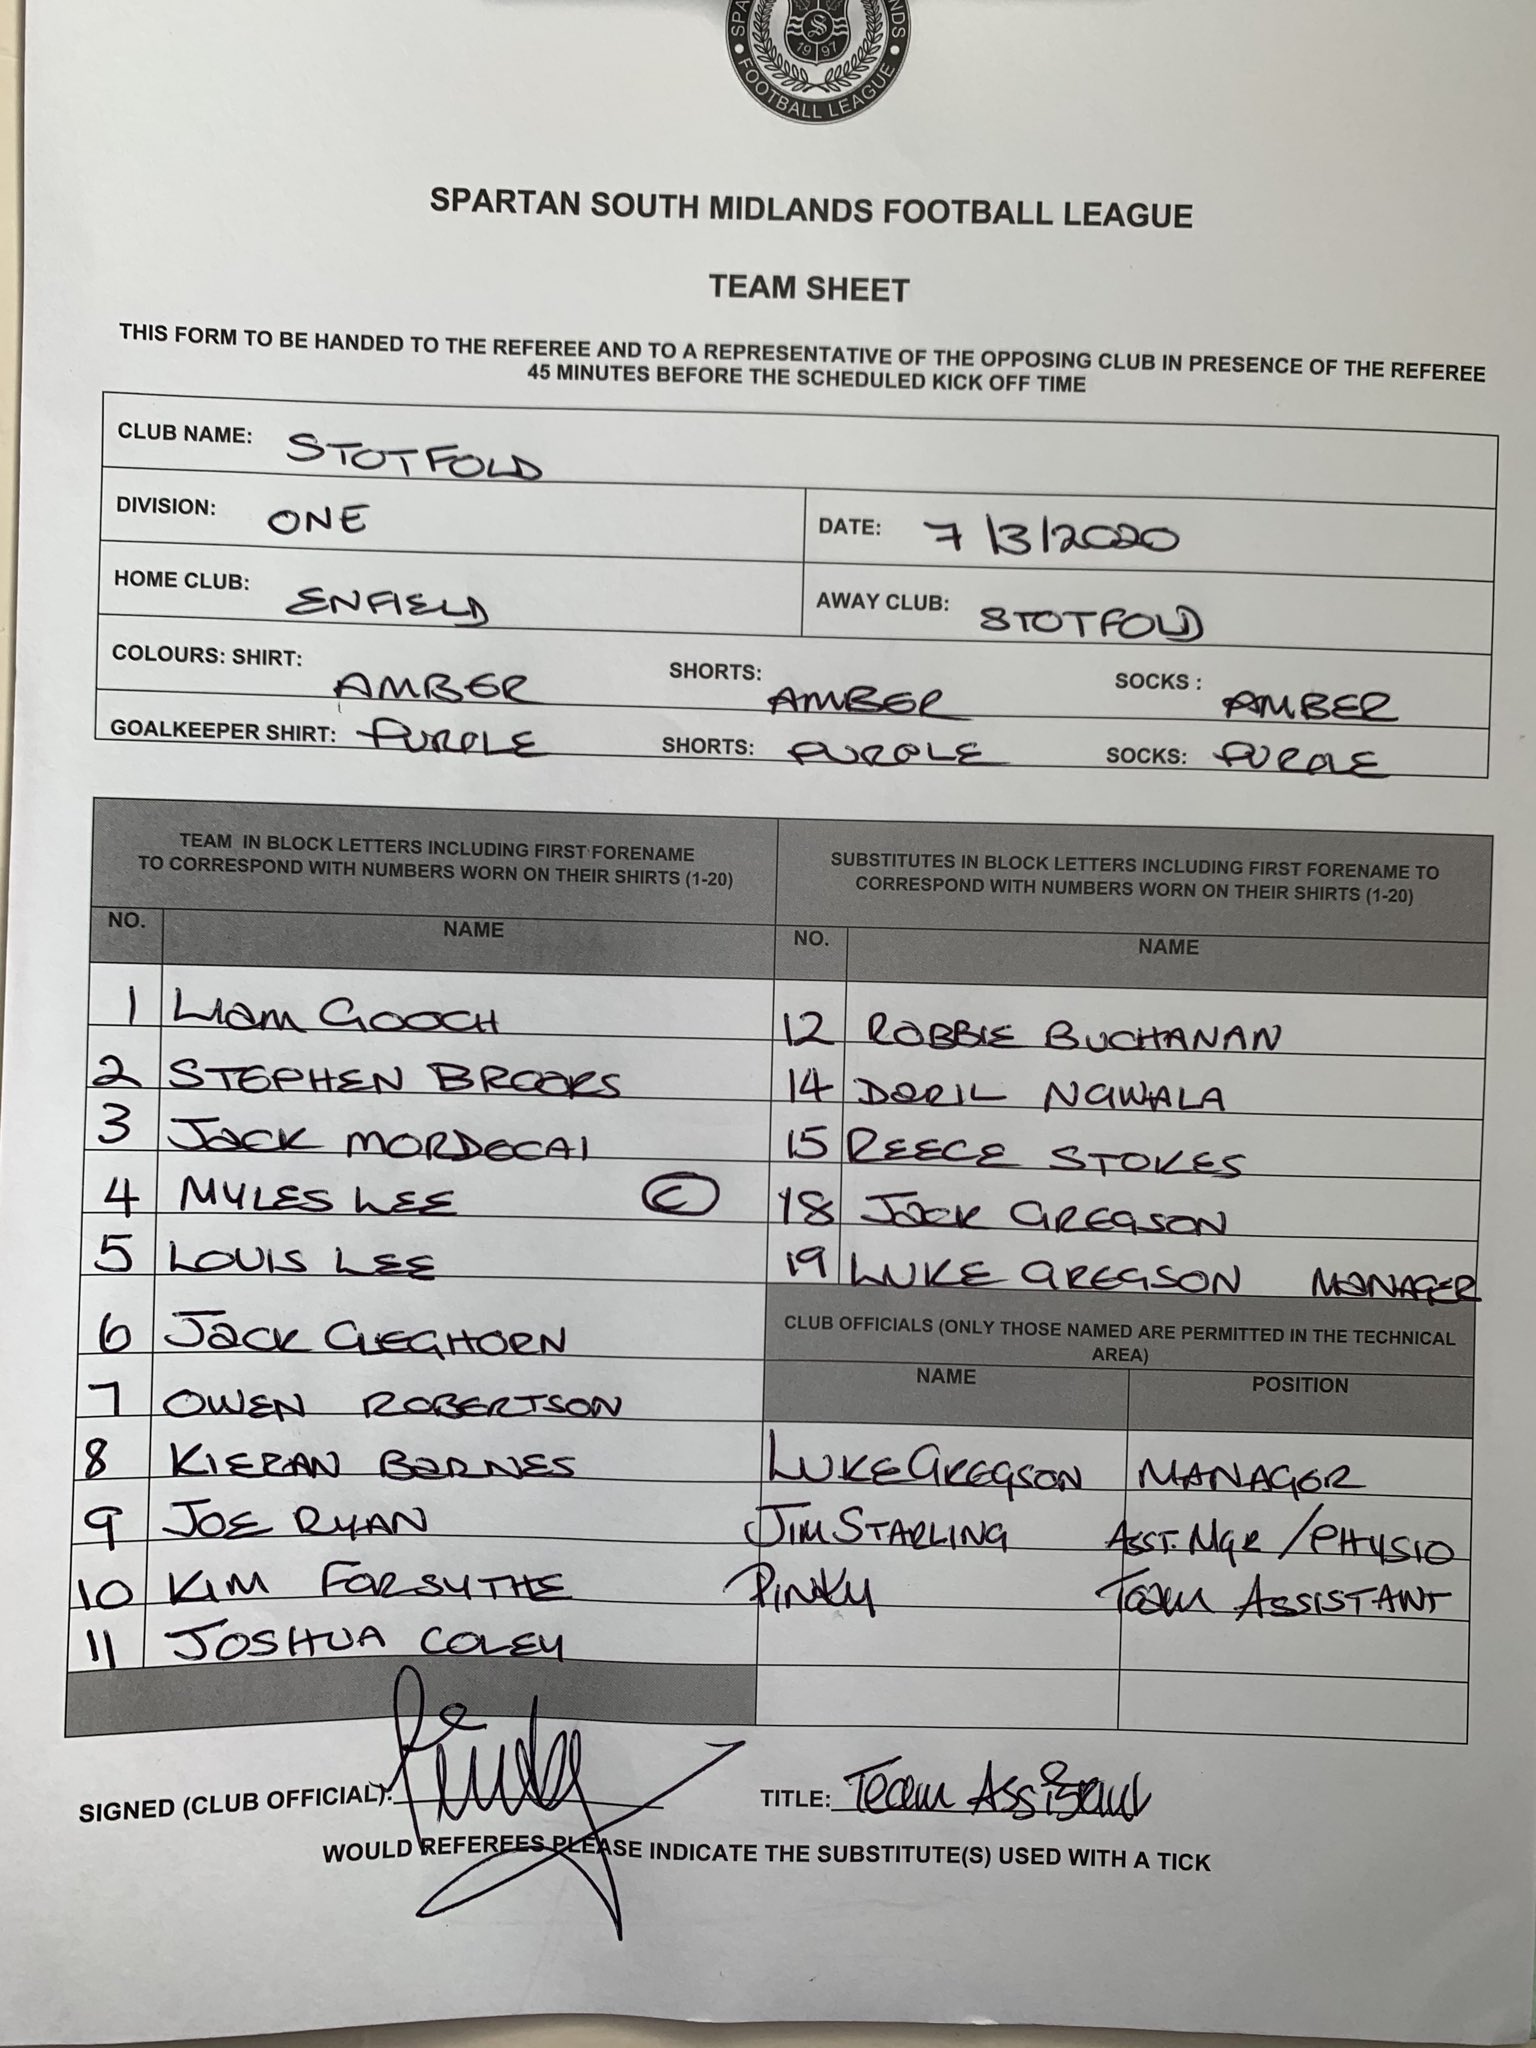 SPA NDS
S
19 97
• FOOTBALL LEAGUE •
SPARTAN SOUTH MIDLANDS FOOTBALL LEAGUE
TEAM SHEET
THIS FORM TO BE HANDED TO THE REFEREE AND TO A REPRESENTATIVE OF THE OPPOSING CLUB IN PRESENCE OF THE REFEREE
45 MINUTES BEFORE THE SCHEDULED KICK OFF TIME
CLUB NAME: STOTFOLD
DIVISION: ONE DATE: 7/3/2020
HOME CLUB: ENFIELD AWAY CLUB: STOTFOLD
COLOURS: SHIRT: AMBER SHORTS: AMBER SOCKS : AMBER
GOALKEEPER SHIRT: PURPLE SHORTS: PURPLE SOCKS: PURPLE
TEAM IN BLOCK LETTERS INCLUDING FIRST FORENAME
TO CORRESPOND WITH NUMBERS WORN ON THEIR SHIRTS (1-20)
NO. NAME
1 LIAM GOOCH
2 STEPHEN BROOKS
3 JACK MORDECAI
4 MYLES LEE C
5 LOUIS LEE
6 JACK CLEGHORN
7 OWEN ROBERTSON
8 KIERAN BARNES
9 JOE RYAN
10 KIM FORSYTHE
11 JOSHUA COLEY
SUBSTITUTES IN BLOCK LETTERS INCLUDING FIRST FORENAME TO
CORRESPOND WITH NUMBERS WORN ON THEIR SHIRTS (1-20)
NO. NAME
12 ROBBIE BUCHANAN
14 DARIL NGWALA
15 REECE STOKES
18 JACK GREGSON
19 LUKE GREGSON MANAGER
CLUB OFFICIALS (ONLY THOSE NAMED ARE PERMITTED IN THE TECHNICAL
AREA)
NAME POSITION
LUKE GREGSON MANAGER
JIM STARLING ASST. MGR / PHYSIO
PINKY TEAM ASSISTANT
SIGNED (CLUB OFFICIAL): TITLE: Team Assistant
WOULD REFEREES PLEASE INDICATE THE SUBSTITUTE(S) USED WITH A TICK